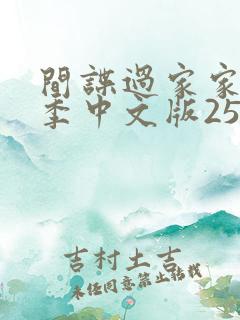 間諜過家家
季中文版25
吉村土吉
未经同意禁止转载